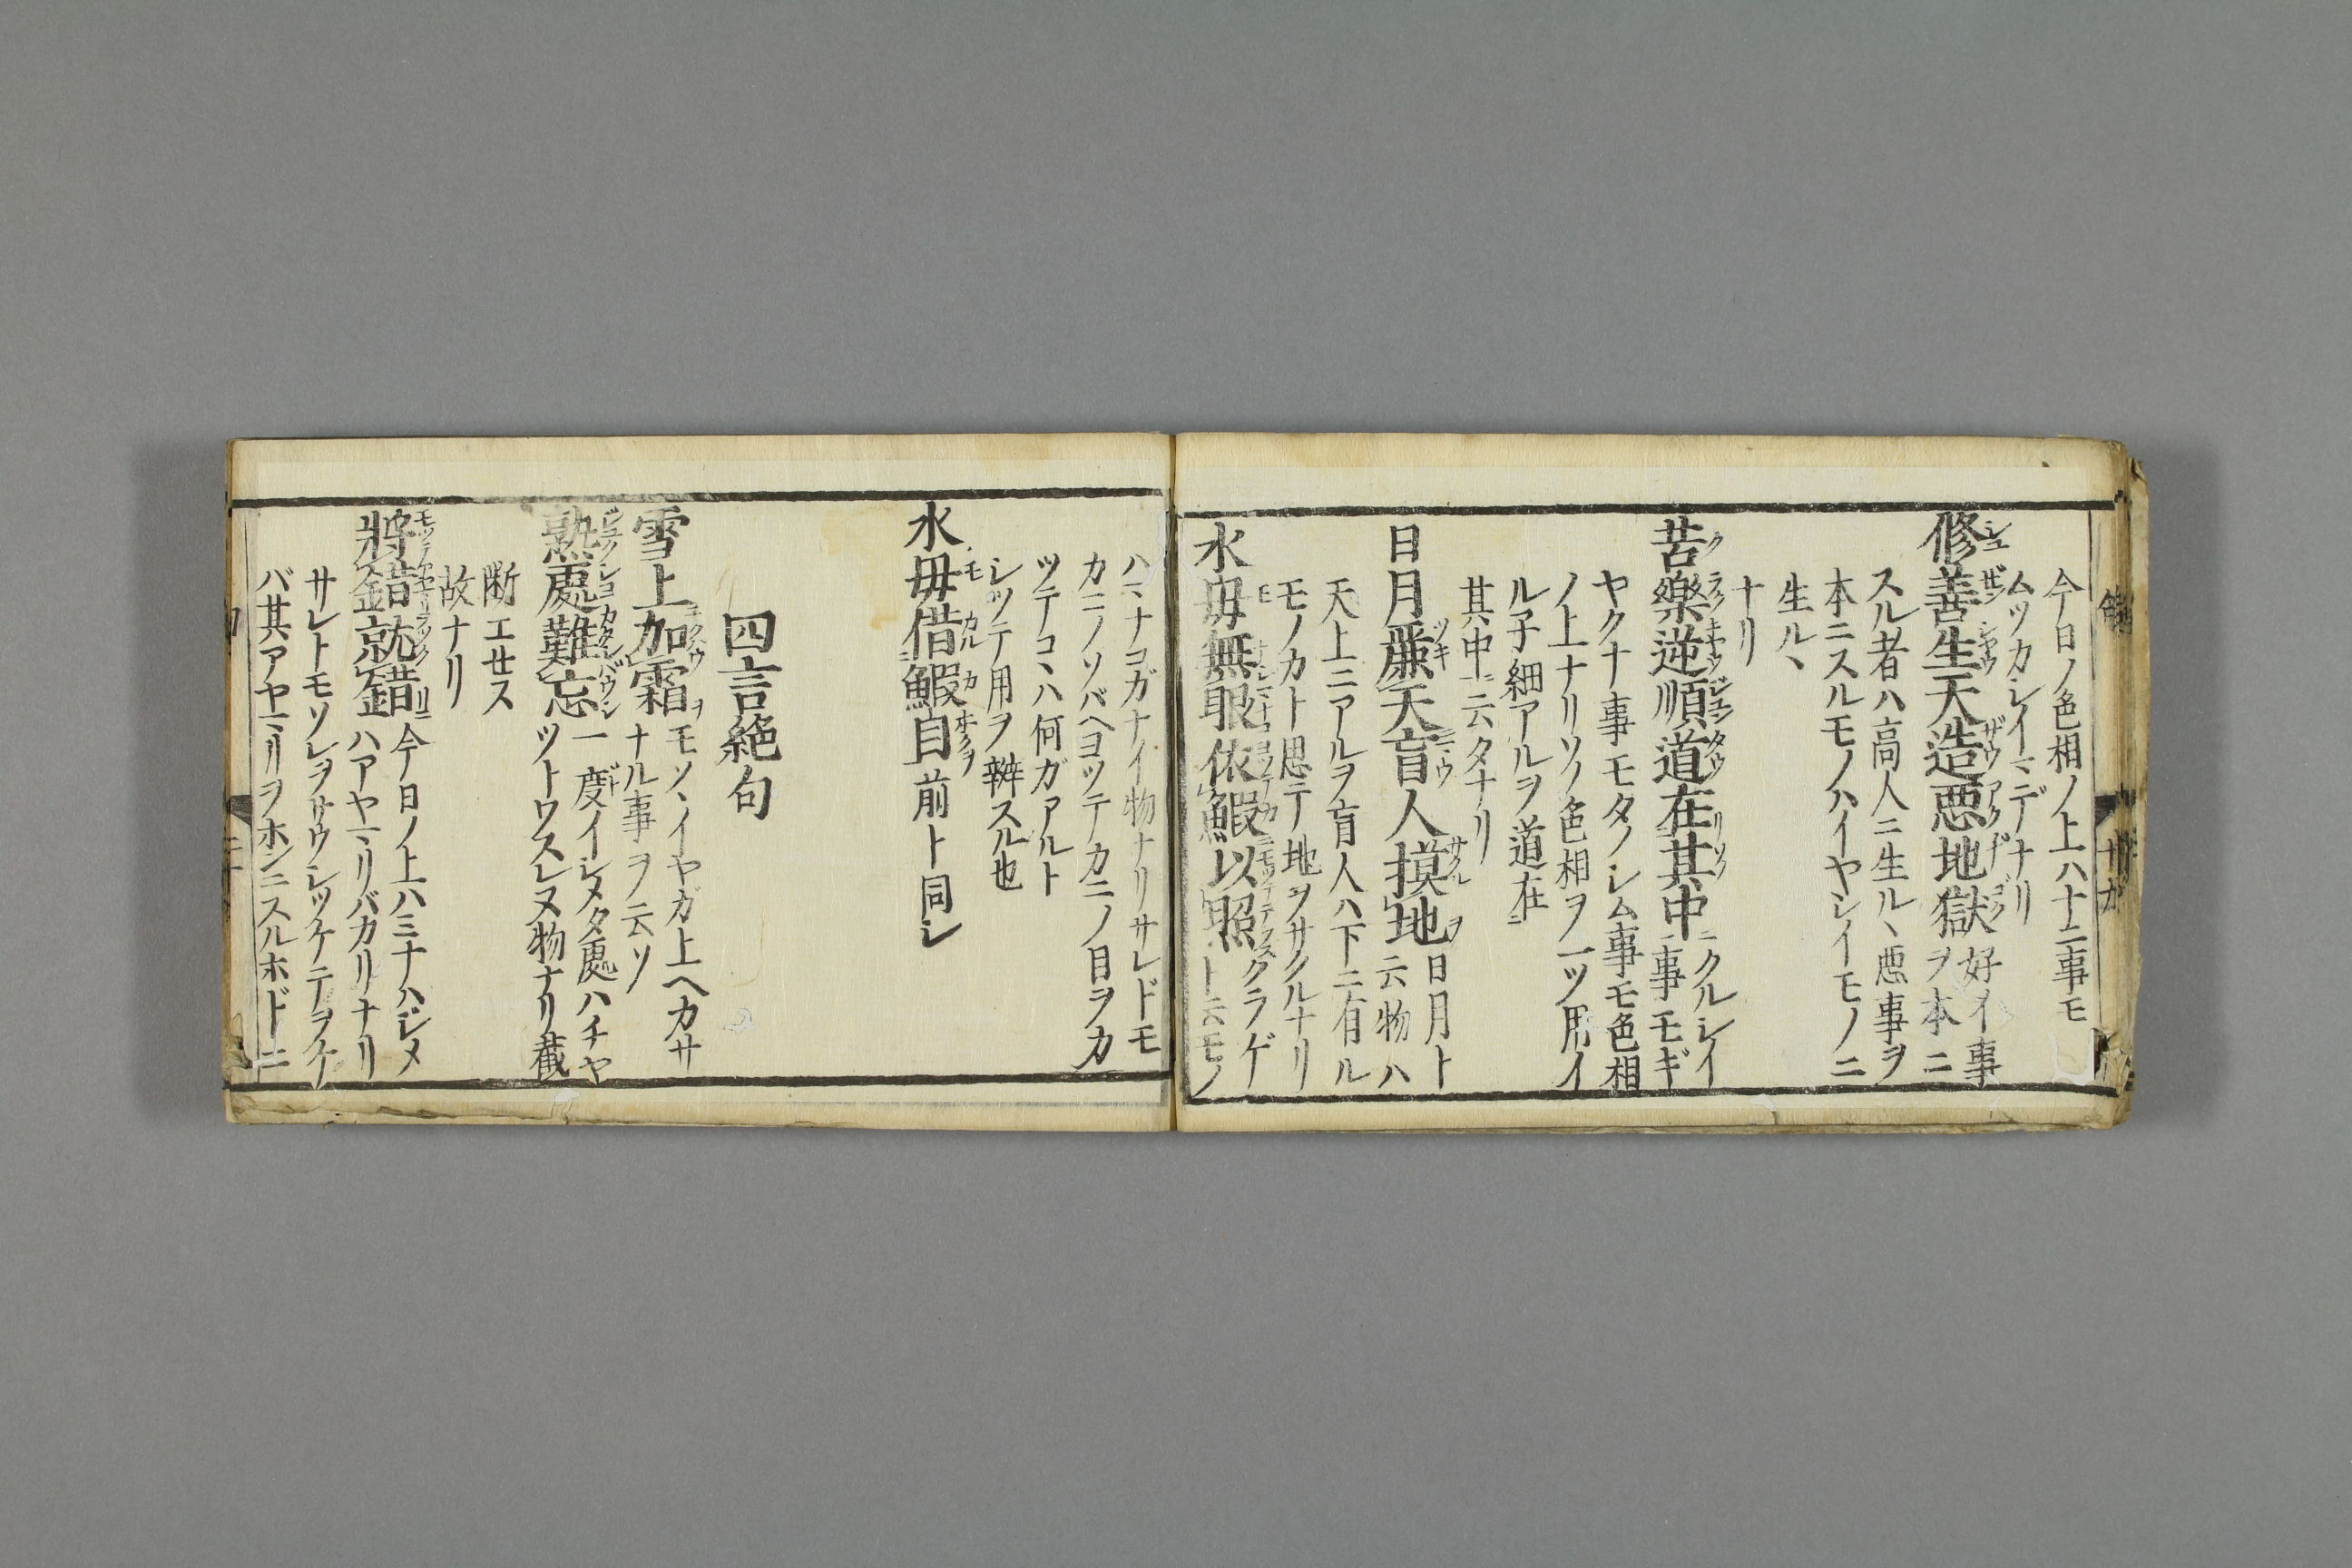 今日ノ色相ノ上ハ十二事モ
ムツカシイマデナリ
修善生天造悪地獄 好イ事
ヲ本ニ
スル者ハ高人ニ生ル、悪事ヲ
本ニスルモノハイヤシイモノニ
生ル、
ナリ
苦樂逆順道在其中 クルシイ
事モギ
ヤクナ事モタノシム事モ色相
ノ上ナリソノ色相ヲ一ツ用イ
ル子細アルヲ道在ニ
其中ニ云タナリ
日月麗天盲人摸地 日月ト
云物ハ
天上ニアルヲ盲人ハ下ニ有ル
モノカト思テ地ヲサグルナリ
水母無眼依鰕以照 クラゲ
ト云モノ
ハマナコガナイ物ナリサレドモ
カニノソバヘヨツテカニノ目ヲカ
ツテコヽハ何ガアルト
シツテ用ヲ辨スル也
水母借鰕自 前ト同シ
四言絶句
雪上加霜 モノヽイヤガ上ヘカサ
ナル事ヲ云ソ
熟處難忘 一度イシメタ處ハチヤ
ツトワスレヌ物ナリ截
断エセス
故ナリ
將錯就錯 今日ノ上ハ三十ハジメ
ハアヤマリバカリナリ
サレトモソレヲサウシツケテヲケ
バ其アヤマリヲホンニスルホドニ